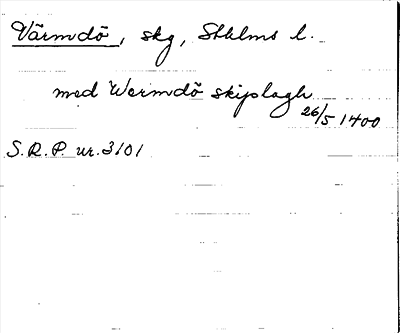 Värmdö, skg, Sthlms l.
med Wermdö skipslagh
26/5 1400
S.R.P. nr. 3101